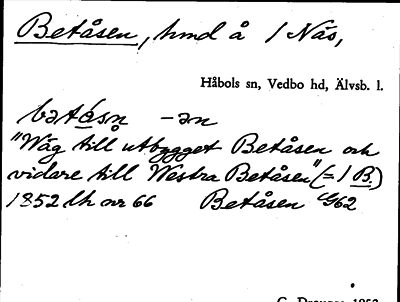 Betåsen, hmd å 1 Näs,
Håbols sn, Vedbo hd, Älvsb. l.
betå̀sn -ən
"Wäg till utbygget Betåsen och
vidare till Westra Betåsen" (= 1 B.)
1852 lh nr 66 Betåsen G62